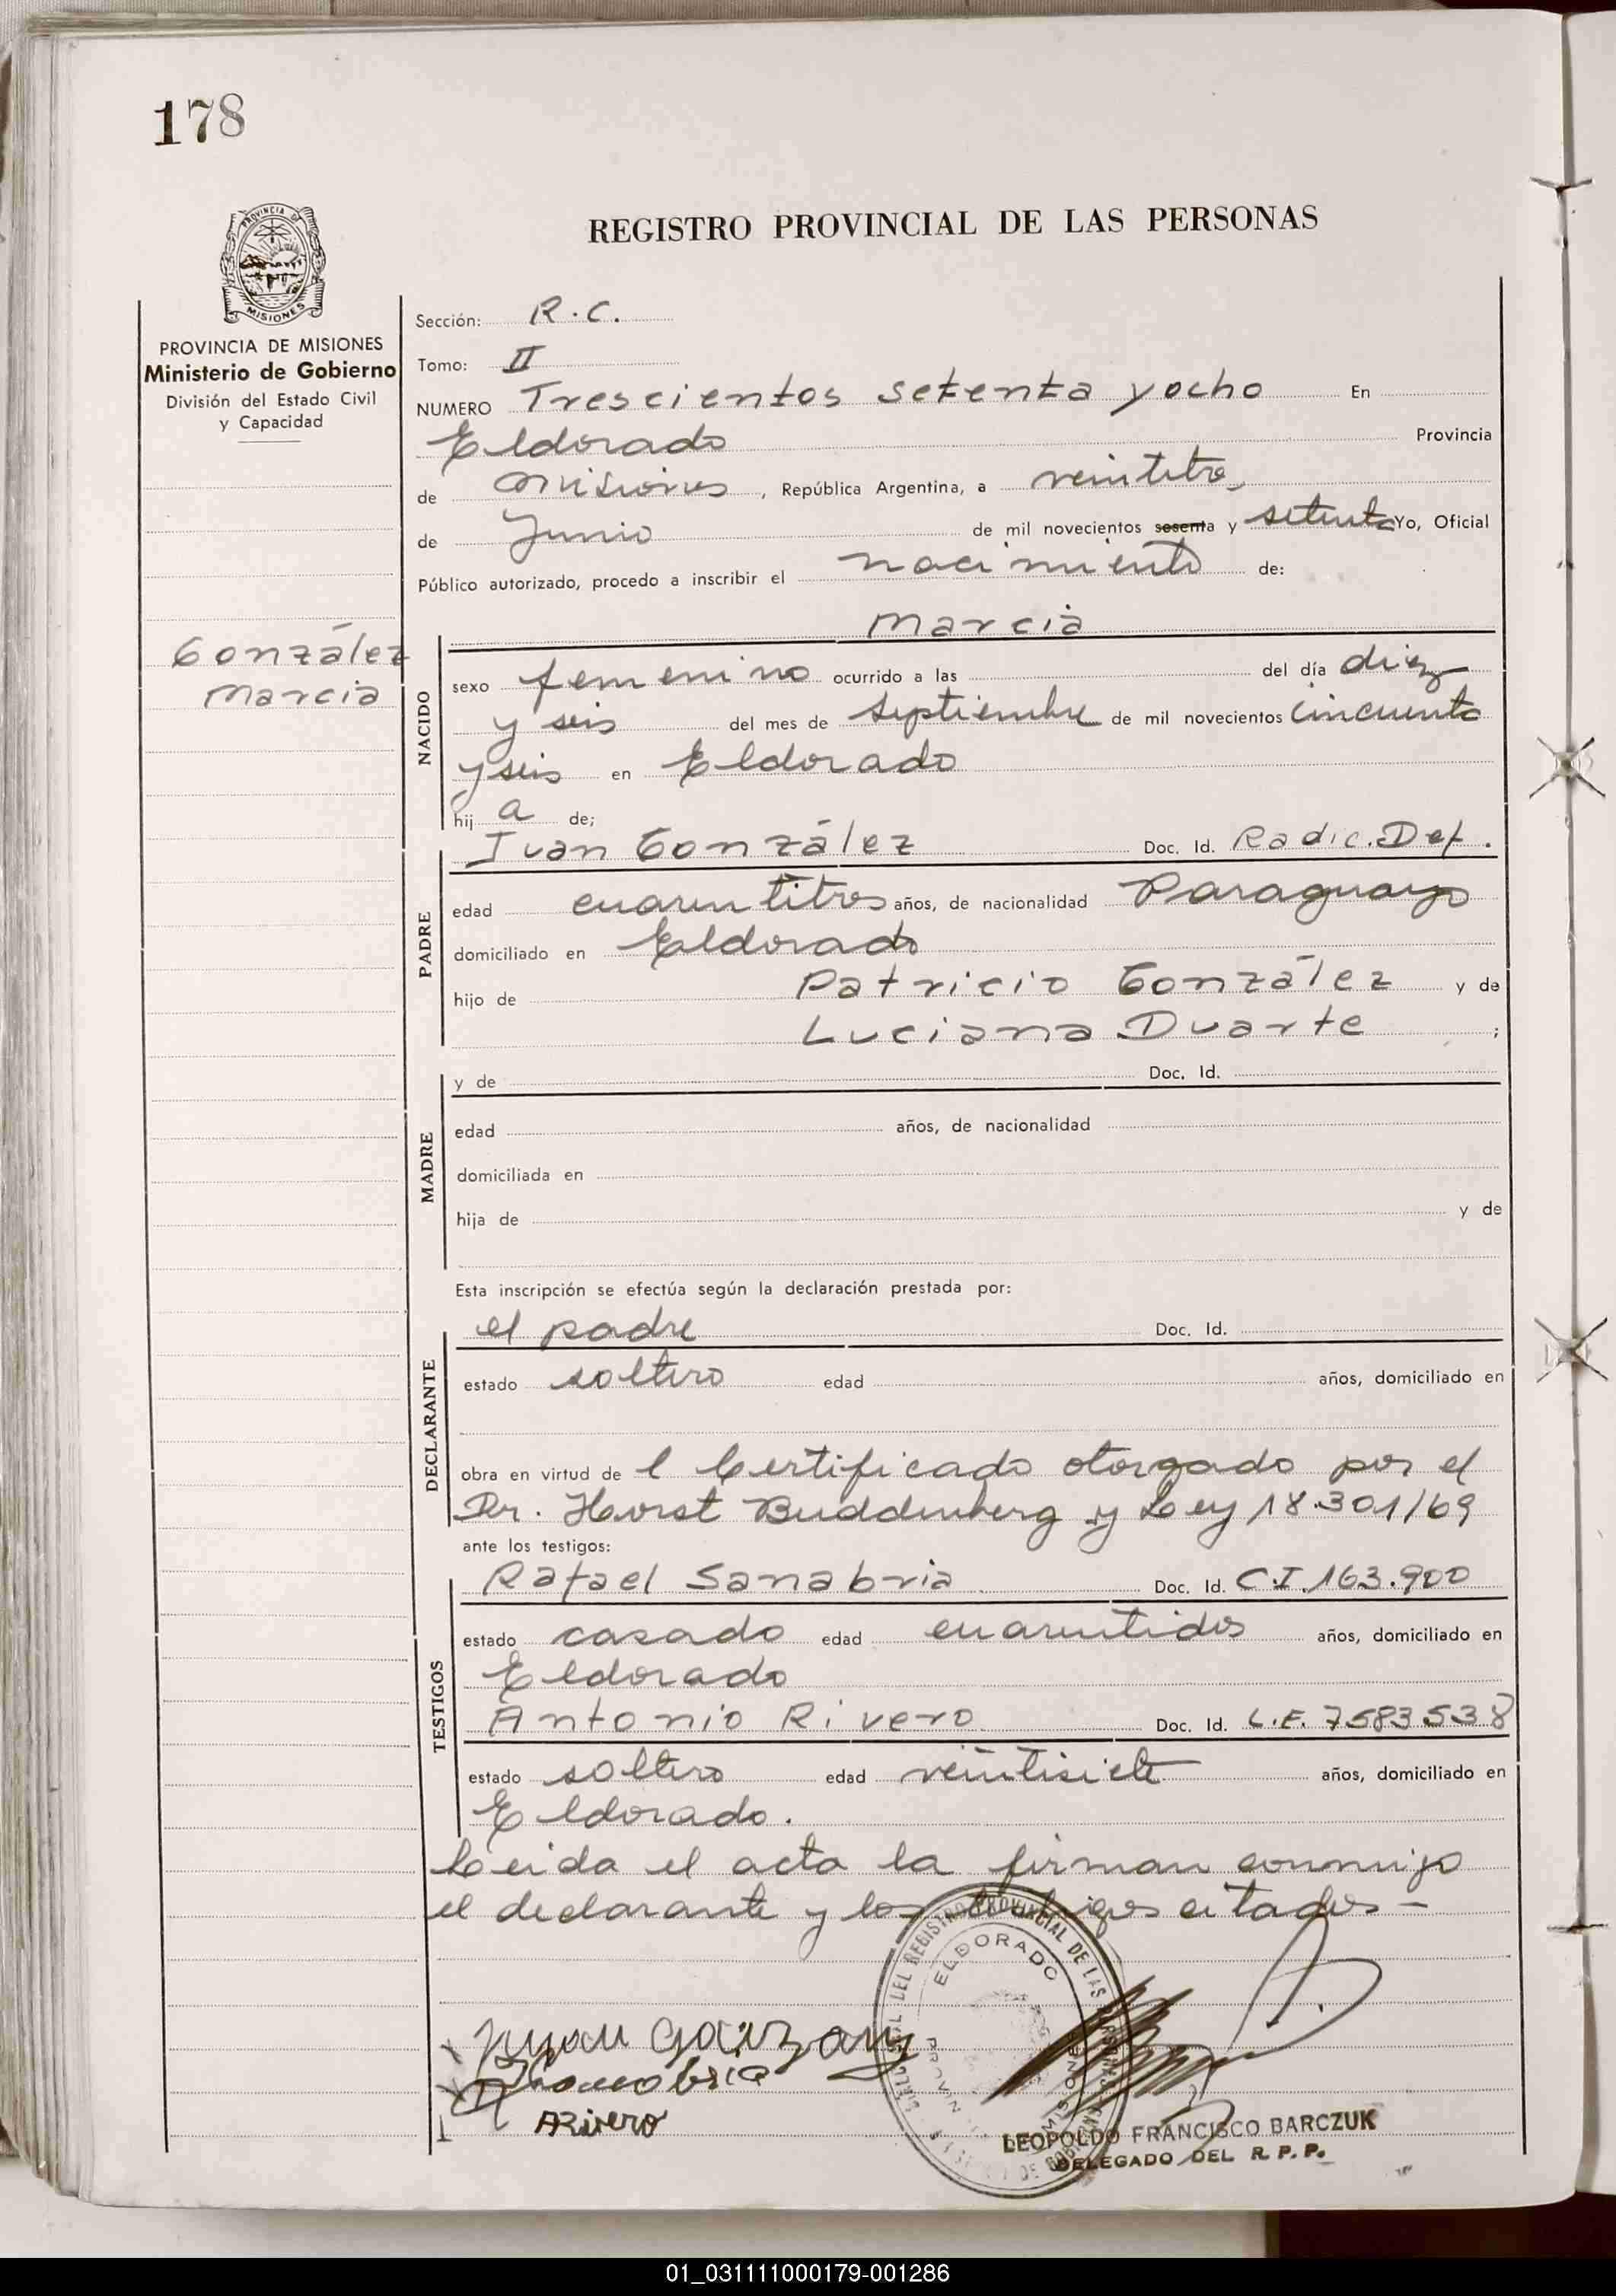 178
PROVINCIA DE
MISIONES
PROVINCIA DE MISIONES
Ministerio de Gobierno
División del Estado Civil
y Capacidad
González
Marcia
REGISTRO PROVINCIAL DE LAS PERSONAS
Sección: R.C.
Tomo: II
NUMERO Trescientos setenta y ocho En
Eldorado Provincia
de Misiones, República Argentina, a veintitrés
de Junio de mil novecientos sesenta y setenta Yo, Oficial
Público autorizado, procedo a inscribir el nacimiento de:
Marcia
NACIDO
sexo femenino ocurrido a las del día diez
y seis del mes de septiembre de mil novecientos cincuenta
y seis en Eldorado
hij a de;
Juan González Doc. Id. Radic. Def.
PADRE
edad cuarentitres años, de nacionalidad Paraguayo
domiciliado en Eldorado
hijo de Patricio González y de
Luciana Duarte ;
MADRE
y de Doc. Id.
edad años, de nacionalidad
domiciliada en
hija de y de
Esta inscripción se efectúa según la declaración prestada por:
el padre Doc. Id.
DECLARANTE
estado soltero edad años, domiciliado en
obra en virtud de l Certificado otorgado por el
Dr. Horst Buddenberg y Ley 18.301/69
ante los testigos:
Rafael Sanabria Doc. Id. C.I. 163.900
TESTIGOS
estado casado edad cuarentidos años, domiciliado en
Eldorado
Antonio Rivero Doc. Id. L.E. 7583538
estado soltero edad veintisiete años, domiciliado en
Eldorado.
Leida el acta la firman conmigo
el declarante y los testigos citados -
REGISTRO PROVINCIAL DE LAS PERSONAS
ELDORADO
MISIONES
ARivero
LEOPOLDO FRANCISCO BARCZUK
DELEGADO DEL R.P.P.
01_031111000179-001286